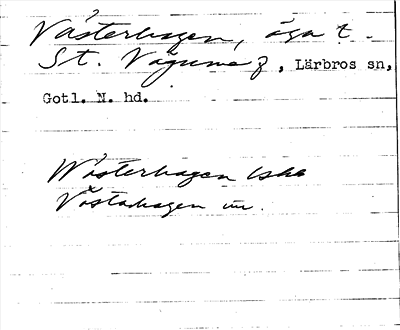 Västerhagen, äga t.
St. Vägume, Lärbros sn,
Gotl. N. hd.
Wästerhagen Lska
Västerhagen